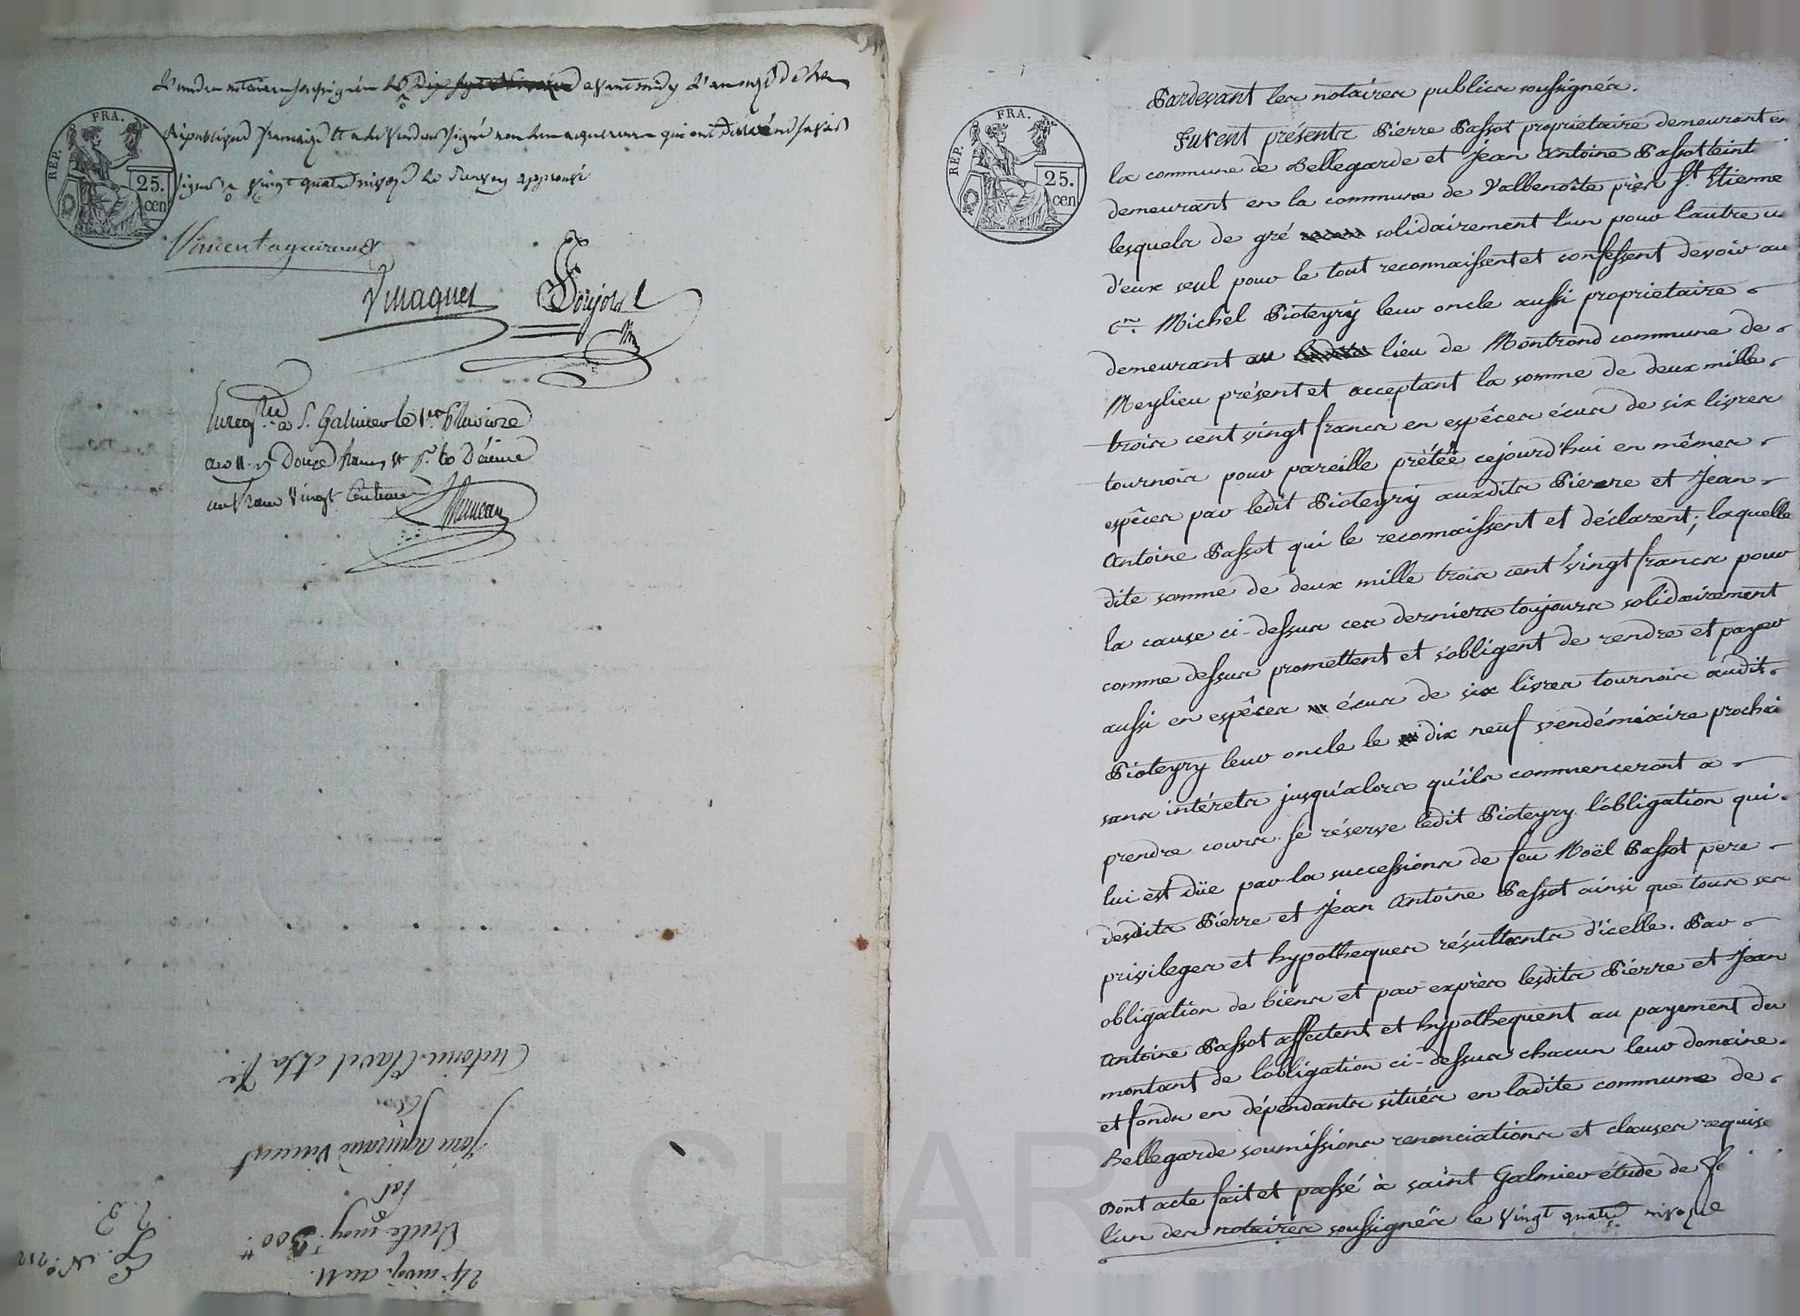 L'un des notaires soussignés le dix sept nivose avant midy L'an onze de la
République française et a le vendeur signé non les acquereurs qui ont déclaré ne savoir
signer vingt quatre nivose de surcroy approuvé
REP. FRA.
25. cen
Vincent aguiraud
Vinaguet
Enreg.tré à S. Galmier le 1.er Pluviose
an 11. r. Douze francs et p.r 10 Décime
un franc vingt Centimes
24. nivose an 11.
Vente moy.t 300.tt
par
Jean aguiraud Vincent
Pour
Antoine Clavel et sa f.e
N.o 212
REP. FRA.
25. cen
Pardevant les notaires publics soussignés.
Furent présents Pierre Passot propriétaire demeurant en
la commune de Bellegarde et Jean Antoine Passot teint
demeurant en la commune de Valbenoite près St. Etienne
lesquels de gré solidairement l'un pour l'autre u
d'eux seul pour le tout reconnaissent et confessent devoir au
C.en Michel Pioteyry leur oncle aussi propriétaire
demeurant au lieu de Montrond commune de
Meylieu présent et acceptant la somme de deux mille
trois cent vingt francs en espêces écus de six livres
tournois pour pareille prétée cejourd'hui en mêmes
espêces par ledit Pioteyry auxdits Pierre et Jean
Antoine Passot qui le reconnaissent et déclarent; laquelle
dite somme de deux mille trois cent vingt francs pour
la cause ci-dessus ces derniers toujours solidairement
comme dessus promettent et s'obligent de rendre et payer
aussi en espêces écus de six livres tournois audit
Pioteyry leur oncle le dix neuf vendémiaire prochai
sans intérets jusqu'alors qu'ils commenceront a
prendre cours. se réserve ledit Pioteyry l'obligation qui
lui est düe par la successions de feu Noël Passot pere
desdits Pierre et Jean Antoine Passot ainsi que tous ses
privileges et hypotheques résultants d'icelle. Par
obligation de biens et par exprès lesdits Pierre et Jean
Antoine Passot affectent et hypothequent au payement du
montant de l'obligation ci-dessus chacun leur domaine
et fonds en dépendants situés en ladite commune de
Bellegarde soumissions renonciations et clauses requise
Dont acte fait et passé à saint Galmier étude de
l'un des notaires soussignés le vingt quatre nivose
CHAREYRON